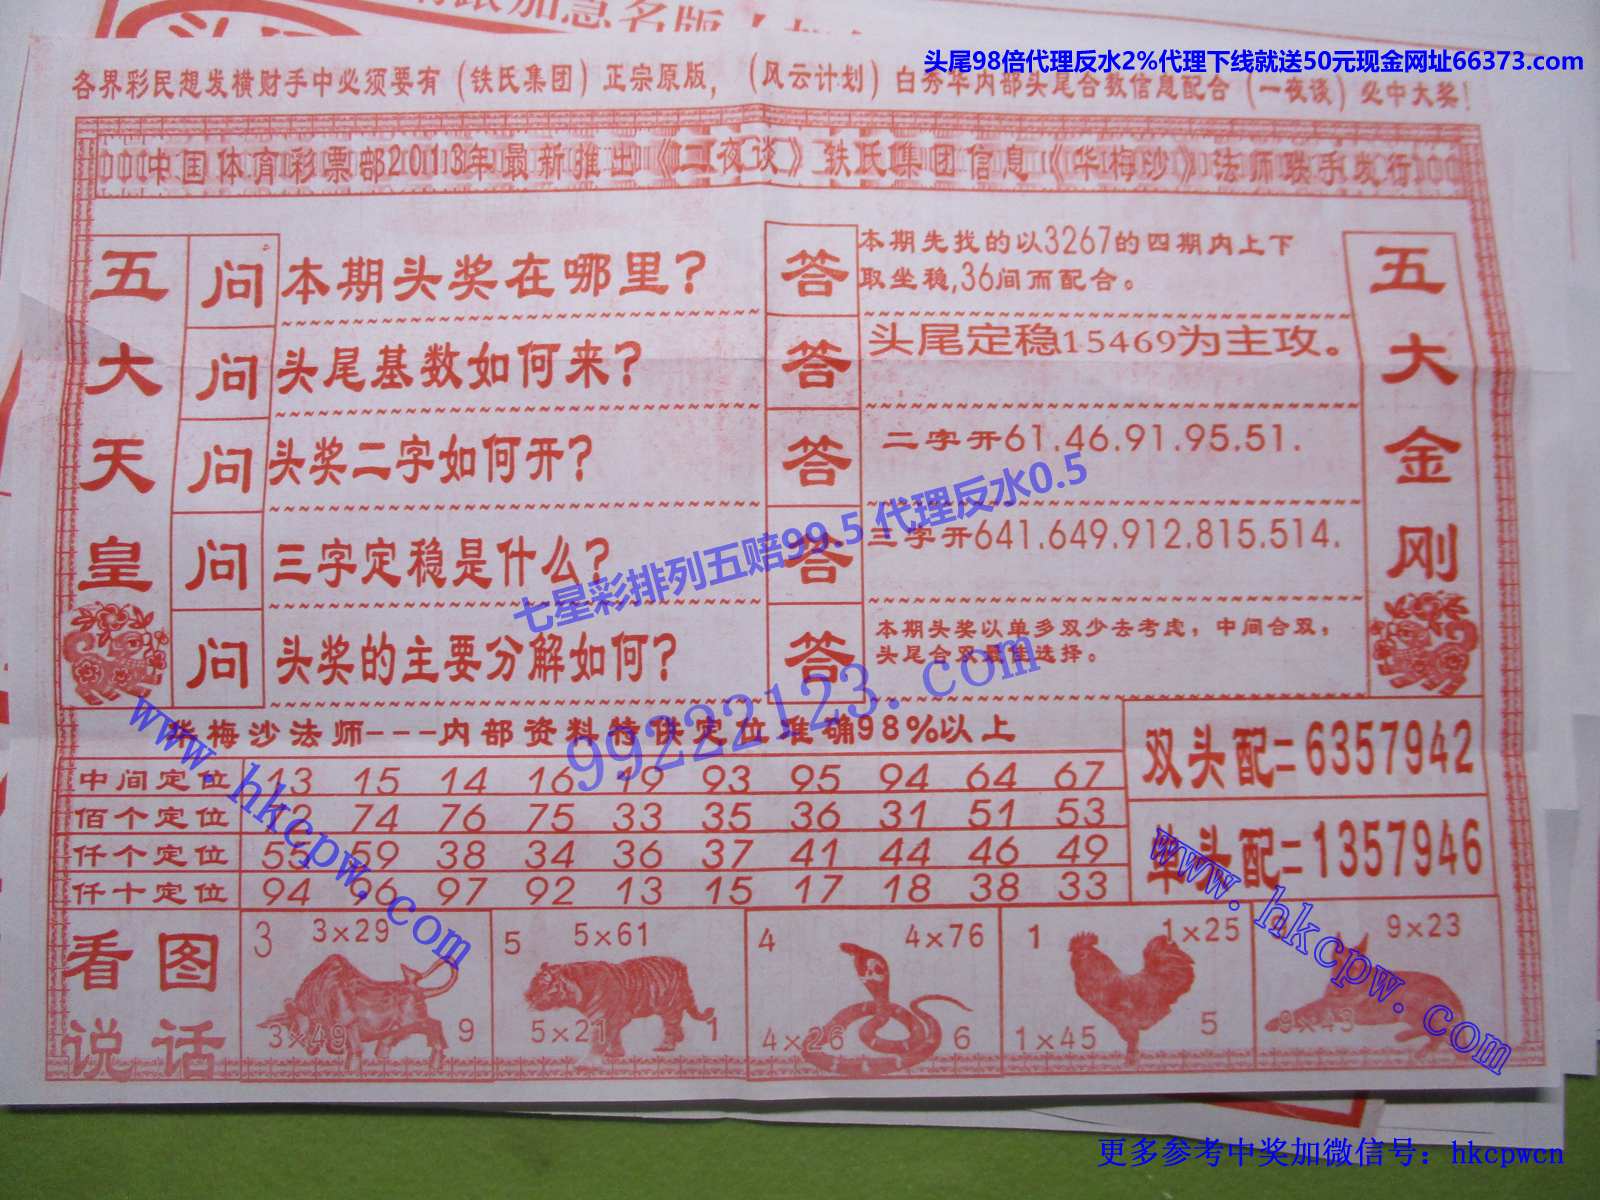 头尾98倍代理反水2%代理下线就送50元现金网址66373.com
各界彩民想发横财手中必须要有（铁氏集团）正宗原版，（风云计划）白秀华内部头尾合数信息配合（一夜谈）必中大奖！
中国体育彩票部2013年最新推出《二夜谈》铁氏集团信息《华梅沙》法师联手发行
五大天皇
问 本期头奖在哪里？
答 本期先找的以3267的四期内上下
取坐稳,36间而配合。
问 头尾基数如何来？
答 头尾定稳15469为主攻。
问 头奖二字如何开？
答 二字开61.46.91.95.51.
问 三字定稳是什么？
答 三字开641.649.912.815.514.
问 头奖的主要分解如何？
答 本期头奖以单多双少去考虑，中间合双，
头尾合双最佳选择。
五大金刚
七星彩排列五赔99.5 代理反水0.5
99222123.com
华梅沙法师---内部资料特供定位准确98%以上
中间定位 13 15 14 16 19 93 95 94 64 67
佰个定位 74 76 75 33 35 36 31 51 53
仟个定位 55 59 38 34 36 37 41 44 46 49
仟十定位 94 96 97 92 13 15 17 18 38 33
双头配二6357942
单头配二1357946
www.hkcpw.com
www.hkcpw.com
看图
说话
3 3×29
3×49 9
5 5×61
5×21 1
4 4×76
4×26 6
1 1×25
1×45 5
9×23
9×43
更多参考中奖加微信号：hkcpwcn